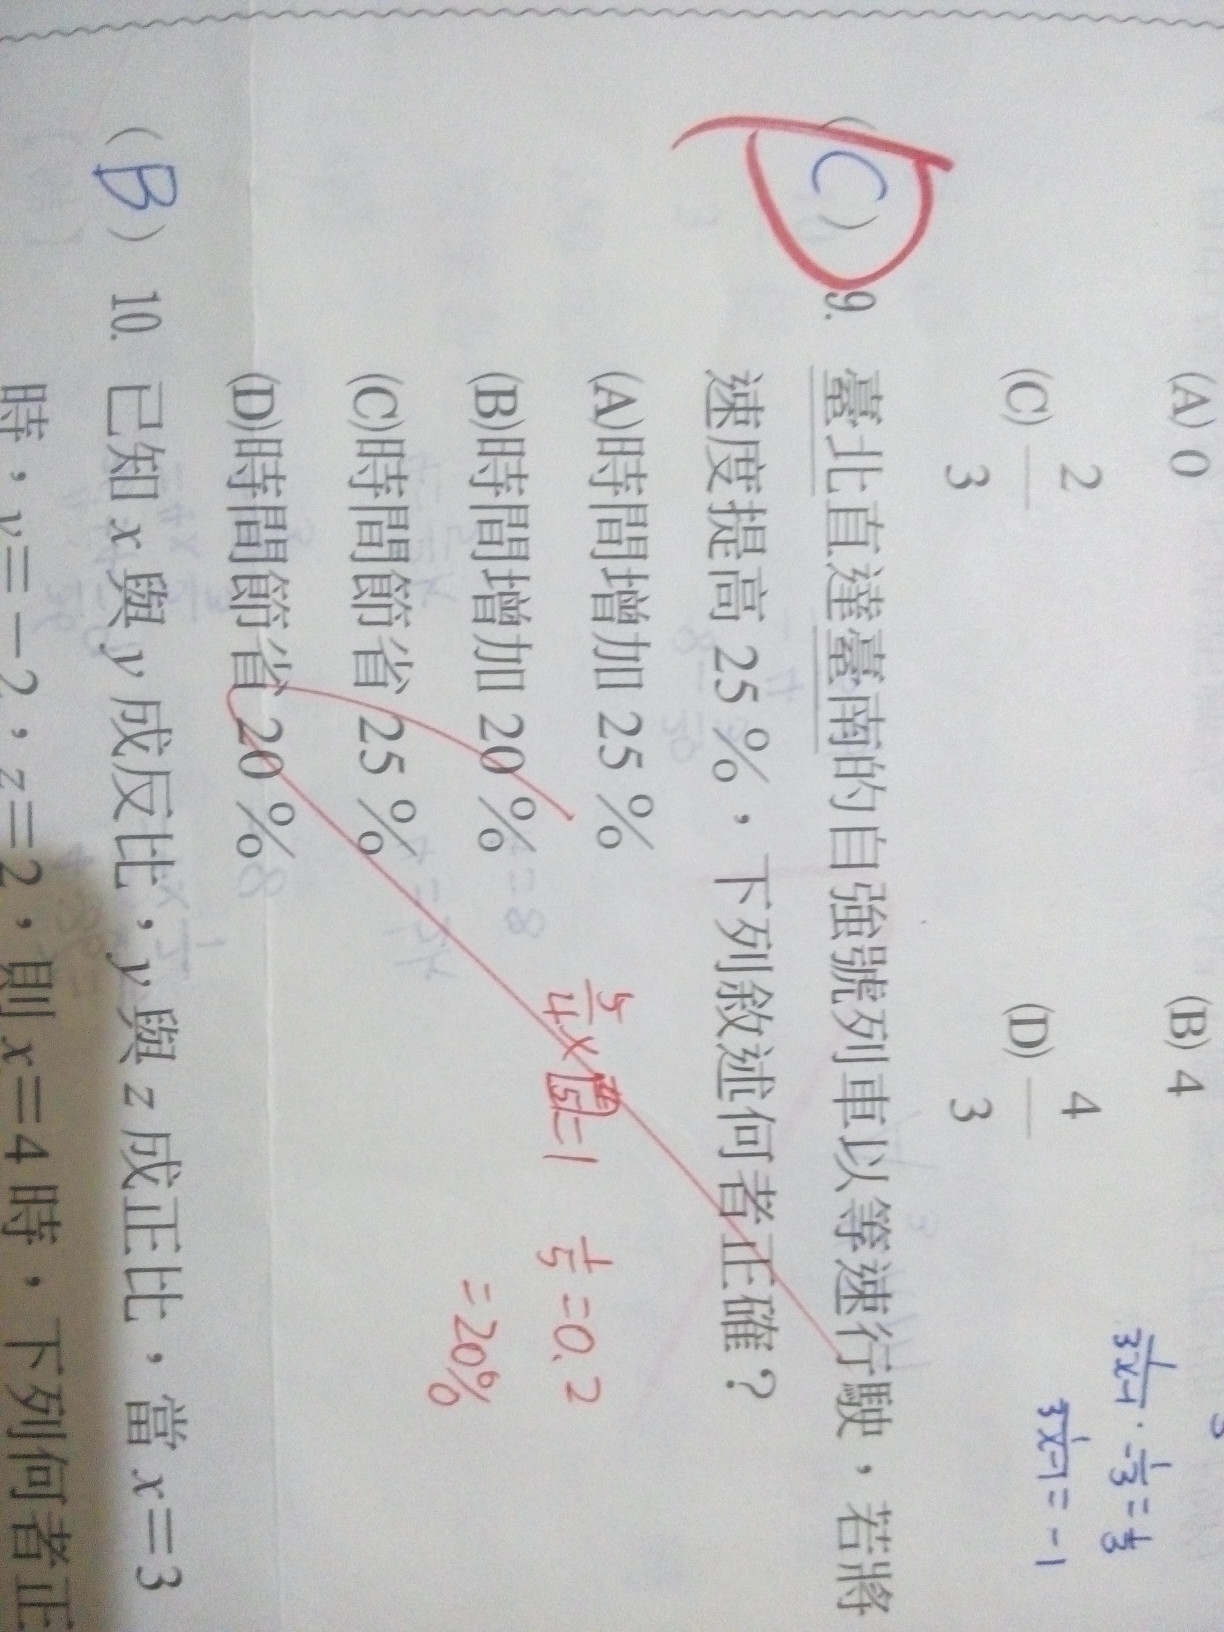 (A) 0
(B) 4
(C) 2/3
(D) 4/3
1/3x-1 · -1/3 = 1/3
1/3x-1 = -1
(C) 9. 臺北直達臺南的自強號列車以等速行駛，若將
D
速度提高 25 %，下列敘述何者正確？
(A)時間增加 25 %
(B)時間增加 20 %
(C)時間節省 25 %
(D)時間節省 20 %
5/4 × 4/5 = 1
1/5 = 0.2
= 20%
(B) 10. 已知 x 與 y 成反比，y 與 z 成正比，當 x=3
時，y=-2，z=2，則 x=4 時，下列何者正